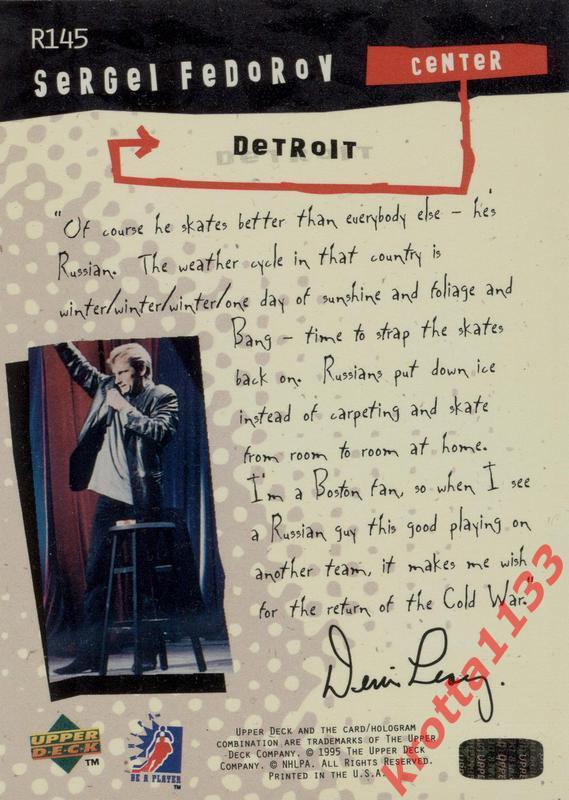 R145
SERGEI FEDOROV
CENTER
DETROIT
"Of course he skates better than everybody else – he's
Russian. The weather cycle in that country is
winter/winter/winter/one day of sunshine and foliage and
Bang – time to strap the skates
back on. Russians put down ice
instead of carpeting and skate
from room to room at home.
I'm a Boston fan, so when I see
a Russian guy this good playing on
another team, it makes me wish
for the return of the Cold War."
Denis Leary
UPPER DECK AND THE CARD/HOLOGRAM
COMBINATION ARE TRADEMARKS OF THE UPPER
DECK COMPANY. © 1995 THE UPPER DECK
COMPANY. © NHLPA. ALL RIGHTS RESERVED.
PRINTED IN THE U.S.A.
UPPER
DECK
TM
NHLPA
BE A PLAYER
TM
krotta1133